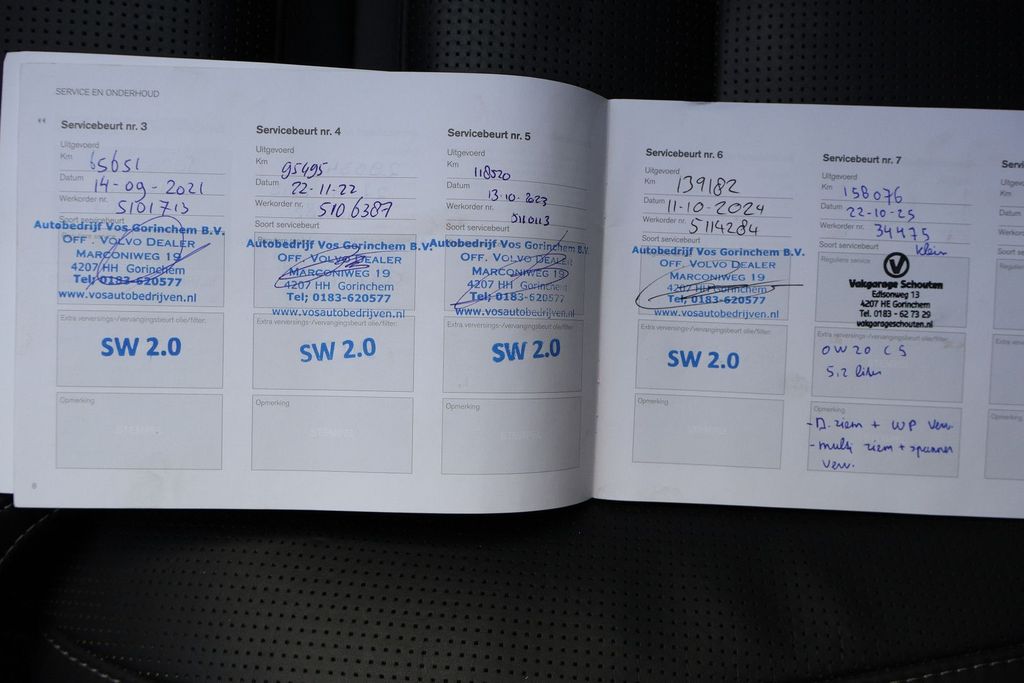 SERVICE EN ONDERHOUD
Servicebeurt nr. 3
Uitgevoerd
Km 65651
Datum 14-09-2021
Werkorder nr. 5101713
Soort servicebeurt
Autobedrijf Vos Gorinchem B.V.
OFF. VOLVO DEALER
MARCONIWEG 19
4207 HH Gorinchem
Tel; 0183-620577
www.vosautobedrijven.nl
Extra verversings-/vervangingsbeurt olie/filter:
SW 2.0
Opmerking
8
Servicebeurt nr. 4
Uitgevoerd
Km 95495
Datum 22-11-22
Werkorder nr. 5106387
Soort servicebeurt
Autobedrijf Vos Gorinchem B.V.
OFF. VOLVO DEALER
MARCONIWEG 19
4207 HH Gorinchem
Tel; 0183-620577
www.vosautobedrijven.nl
Extra verversings-/vervangingsbeurt olie/filter:
SW 2.0
Opmerking
Servicebeurt nr. 5
Uitgevoerd
Km 118520
Datum 13-10-2023
Werkorder nr.
Soort servicebeurt
Autobedrijf Vos Gorinchem B.V.
OFF. VOLVO DEALER
MARCONIWEG 19
4207 HH Gorinchem
Tel; 0183-620577
www.vosautobedrijven.nl
Extra verversings-/vervangingsbeurt olie/filter:
SW 2.0
Opmerking
Servicebeurt nr. 6
Uitgevoerd
Km 139182
Datum 11-10-2024
Werkorder nr. 5114284
Soort servicebeurt
Autobedrijf Vos Gorinchem B.V.
OFF. VOLVO DEALER
MARCONIWEG 19
4207 HH Gorinchem
Tel; 0183-620577
www.vosautobedrijven.nl
Extra verversings-/vervangingsbeurt olie/filter:
SW 2.0
Opmerking
Servicebeurt nr. 7
Uitgevoerd
Km 158076
Datum 22-10-25
Werkorder nr. 34475
Soort servicebeurt klein
Reguliere service
Vakgarage Schouten
Edisonweg 13
4207 HE Gorinchem
Tel. 0183 - 62 73 29
vakgarageschouten.nl
Extra verversings-/vervangingsbeurt olie/filter:
0W20 C5
5.2 liter
Opmerking
- D. riem + WP Verv.
- multi riem + spanner
Verv.